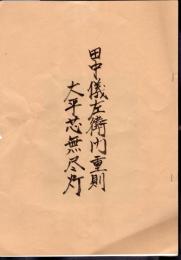 田中儀左衛門重則
太平芯無尽灯